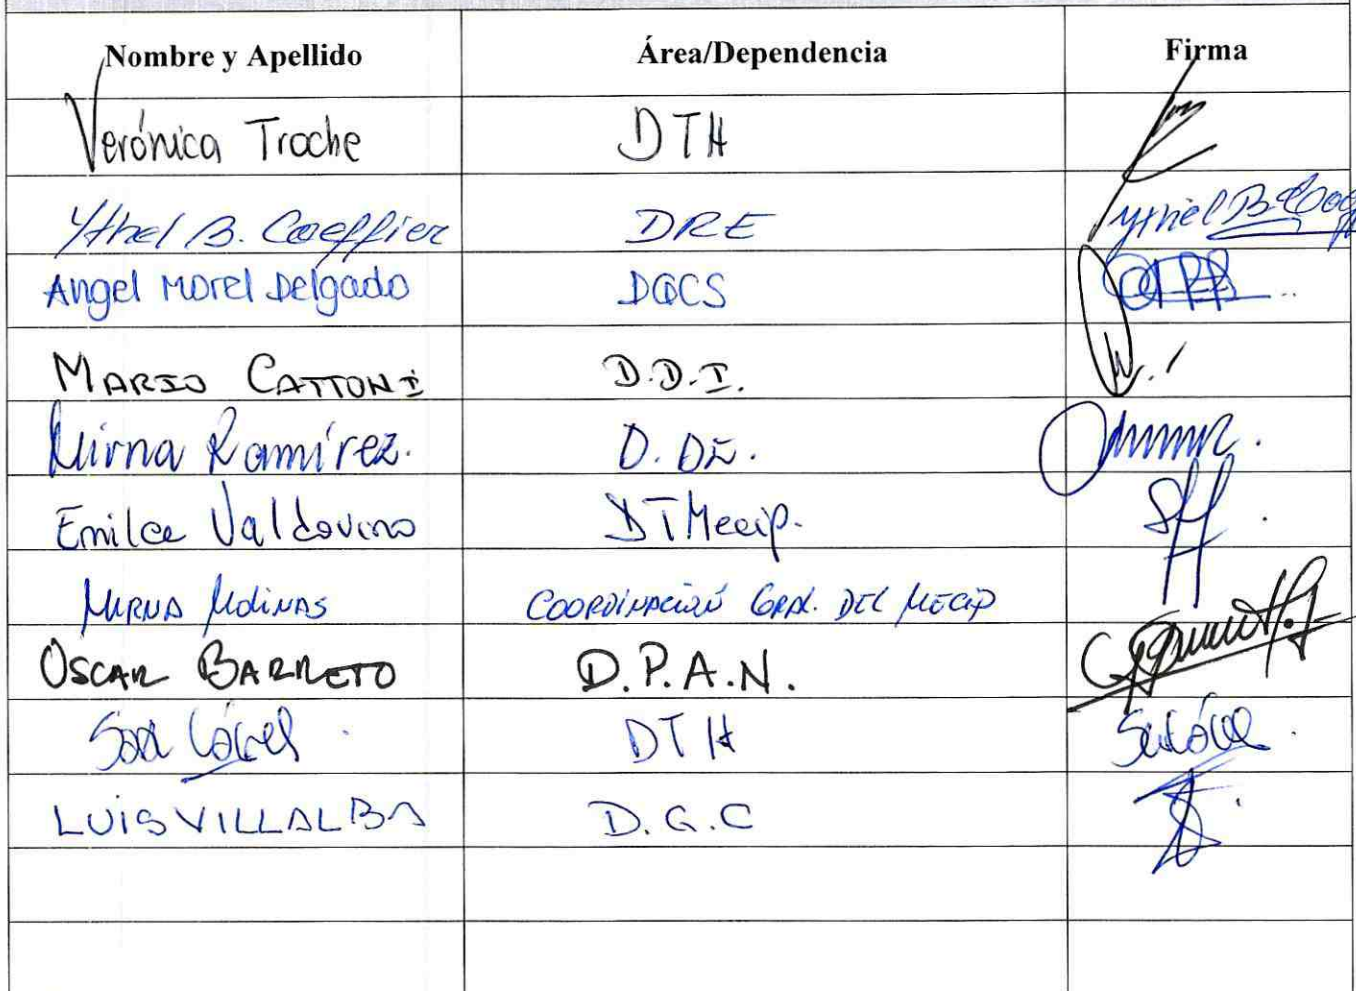 Nombre y Apellido Área/Dependencia Firma
Verónica Troche DTH
Ythel B. Coeffier DRE
Angel Morel Delgado DQCS
MARIO CATTONI D.D.I.
Mirna Ramírez. D.DE.
Emilce Valdovino DTMecip.
MIRNA MOLINAS COORDINACIÓN GRAL. DEL MECIP
OSCAR BARRETO D.P.A.N.
DTH
LUIS VILLALBA D.G.C